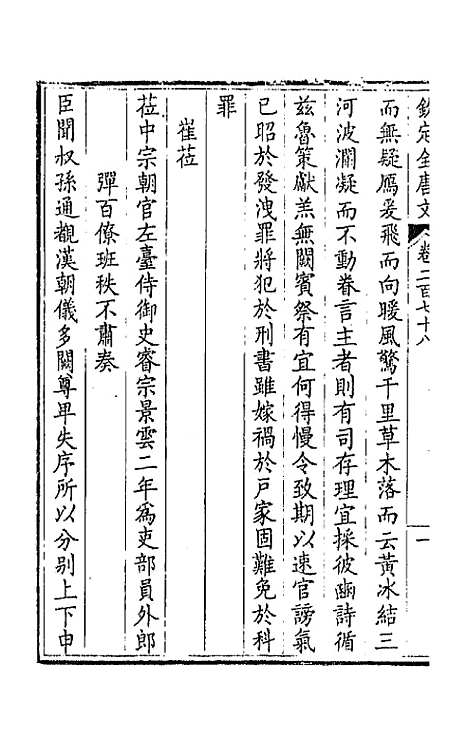 欽定全唐文 卷二百七十八 一
而無疑鴈爰飛而向暖風驚千里草木落而云黃冰結三
河波瀾凝而不動眷言主者則有司存理宜採彼豳詩循
茲魯策獻羔無闕賓祭有宜何得慢令致期以速官謗氣
已昭於發洩罪將犯於刑書雖嫁禍於戸家固難免於科
罪
崔莅
莅中宗朝官左臺侍御史睿宗景雲二年爲吏部員外郎
彈百僚班秩不肅奏
臣聞叔孫通覩漢朝儀多闕尊卑失序所以分别上下申